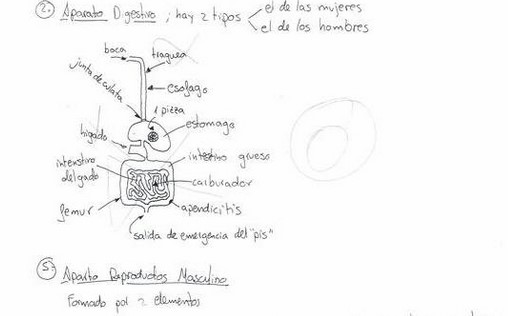 2. Aparato Digestivo ; hay 2 tipos
el de las mujeres
el de los hombres
boca
traquea
junta de culata
esofago
1 pizza
estomago
higado
intenstino delgado
intestino grueso
carburador
femur
apendicitis
salida de emergencia del "pis"
5. Aparto Reproductos Masculino
Formado pol 2 elementos